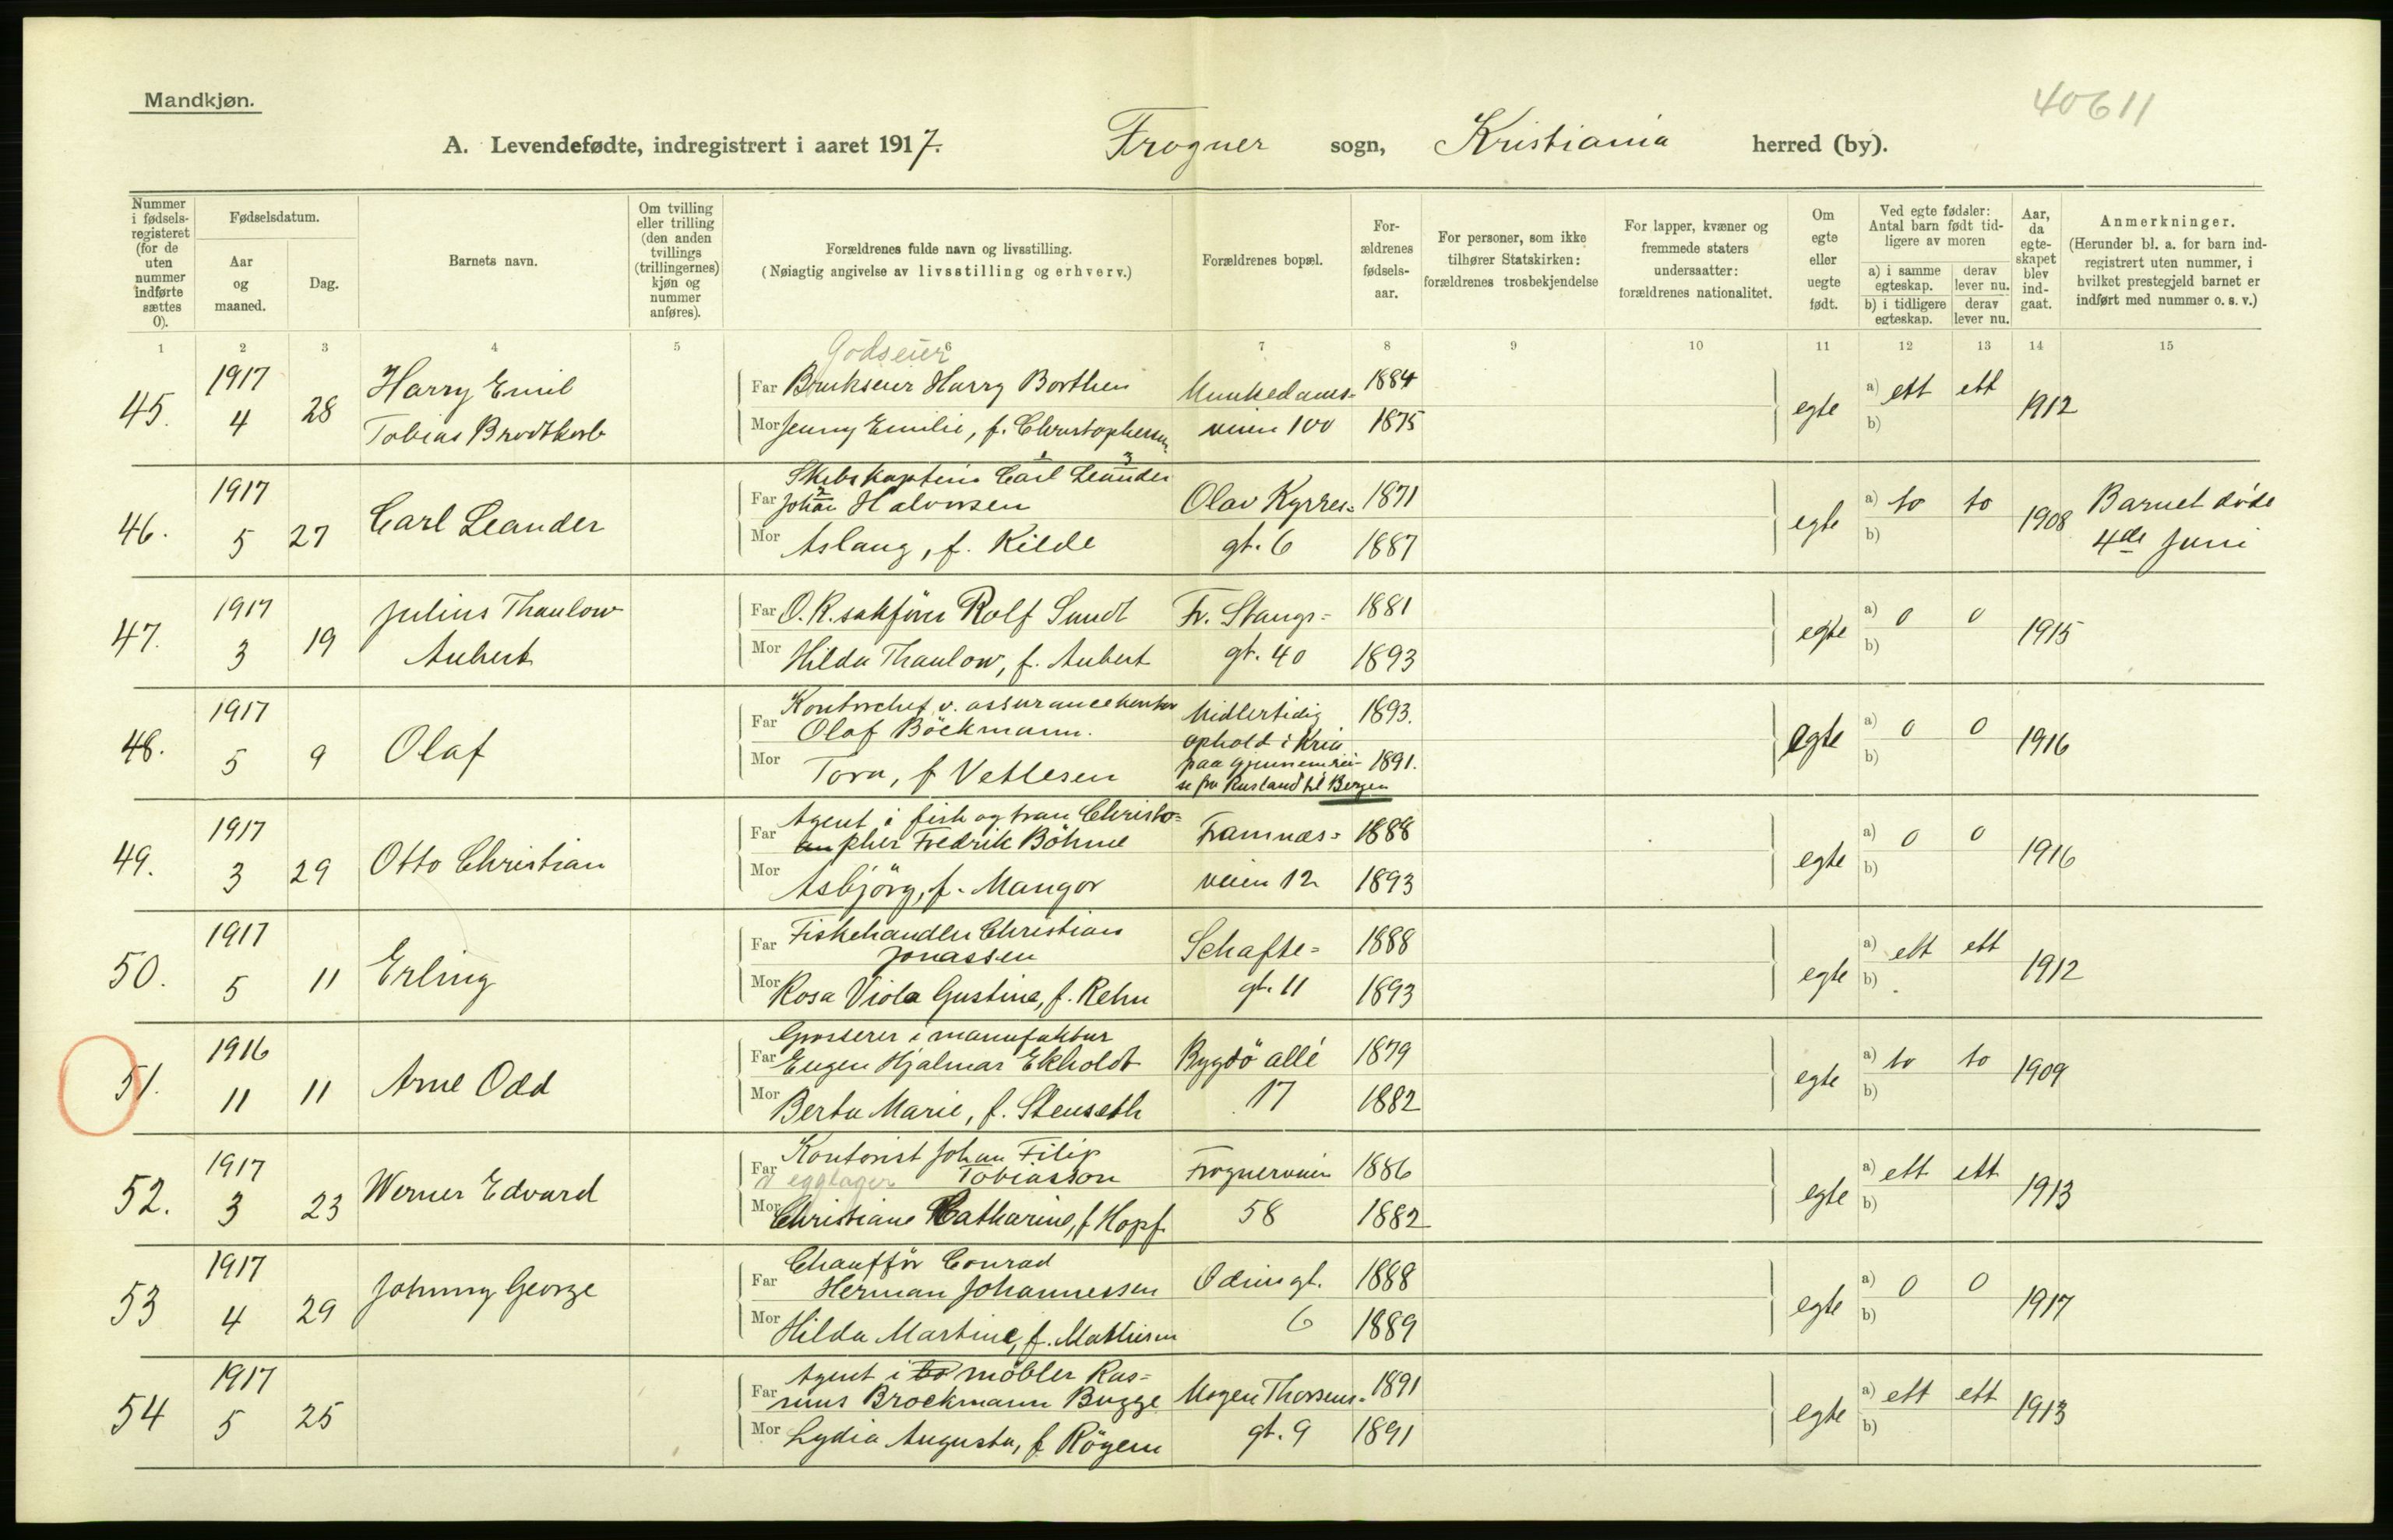 Mandkjøn.
40611
A. Levendefødte, indregistrert i aaret 1917. Frogner sogn, Kristiania herred (by).
Nummer i fødselsregisteret (for de uten nummer indførte sættes 0).
Fødselsdatum.
Aar og maaned.
Dag.
Barnets navn.
Om tvilling eller trilling (den anden tvillings (trillingernes) kjøn og nummer anføres).
Forældrenes fulde navn og livsstilling.
(Nøiagtig angivelse av livsstilling og erhverv.)
Forældrenes bopæl.
Forældrenes fødselsaar.
For personer, som ikke tilhører Statskirken: forældrenes trosbekjendelse
For lapper, kvæner og fremmede staters undersaatter: forældrenes nationalitet.
Om egte eller uegte født.
Ved egte fødsler: Antal barn født tidligere av moren
a) i samme egteskap. derav lever nu.
b) i tidligere egteskap. derav lever nu.
Aar, da egteskapet blev indgaat.
Anmerkninger.
(Herunder bl. a. for barn indregistrert uten nummer, i hvilket prestegjeld barnet er indført med nummer o. s. v.)
1 2 3 4 5 6 7 8 9 10 11 12 13 14 15
Godseier
45. 1917 4 28 Harry Emil Tobias Brodtkorb
Far Brukseier Harry Borthen Munkedams- 1884
Mor Jenny Emilie, f. Christophersen veien 100 1875
egte a) ett ett b) 1912
46. 1917 5 27 Carl Leander
Skibskaptein Carl Leander
Far Johan Halvorsen Olav Kyrres- 1871
Mor Aslaug, f. Kilde gt. 6 1887
egte a) to to b) 1908 Barnet døde 4de Juni
47. 1917 3 19 Julius Thaulow Aubert
Far O.R.sakfører Rolf Sundt Fr. Stangs- 1881
Mor Hilda Thaulow, f. Aubert gt. 40 1893
egte a) 0 0 b) 1915
48. 1917 5 9 Olaf
Kontorchef v. assurancekontor
Far Olaf Böckmann. Midlertidig 1893.
ophold i Kria
Mor Tora, f. Vetlesen paa gjennemrei- 1891.
se fra Rusland til Bergen
egte a) 0 0 b) 1916
49. 1917 3 29 Otto Christian
Agent i fisk og tran Christo-
Far pher Fredrik Böhme Framnæs- 1888
Mor Asbjörg, f. Mangor veien 12 1893
egte a) 0 0 b) 1916
50. 1917 5 11 Erling
Far Fiskehandler Christian Jonassen Schafte- 1888
Mor Rosa Viola Gustine, f. Rehn gt. 11 1893
egte a) ett ett b) 1912
51. 1916 11 11 Arne Odd
Grosserer i manufaktur
Far Eugen Hjalmar Ekholdt Bygdö allé 1879
Mor Berta Marie, f. Stenseth 17 1882
egte a) to to b) 1909
52. 1917 3 23 Werner Edvard
Kontorist Johan Filip
Far i egglager Tobiasson Frognerveien 1886
Mor Christiane Catharine, f. Hopf 58 1882
egte a) ett ett b) 1913
53 1917 4 29 Johnny George
Chaufför Conrad
Far Herman Johannessen Odinsgt. 1888
Mor Hilda Martine, f. Mathisen 6 1889
egte a) 0 0 b) 1917
54 1917 5 25
Agent i möbler Ras-
Far mus Brockmann Bugge Mogen Thorsens- 1891
Mor Lydia Augusta, f. Rögem gt. 9 1891
egte a) ett ett b) 1913